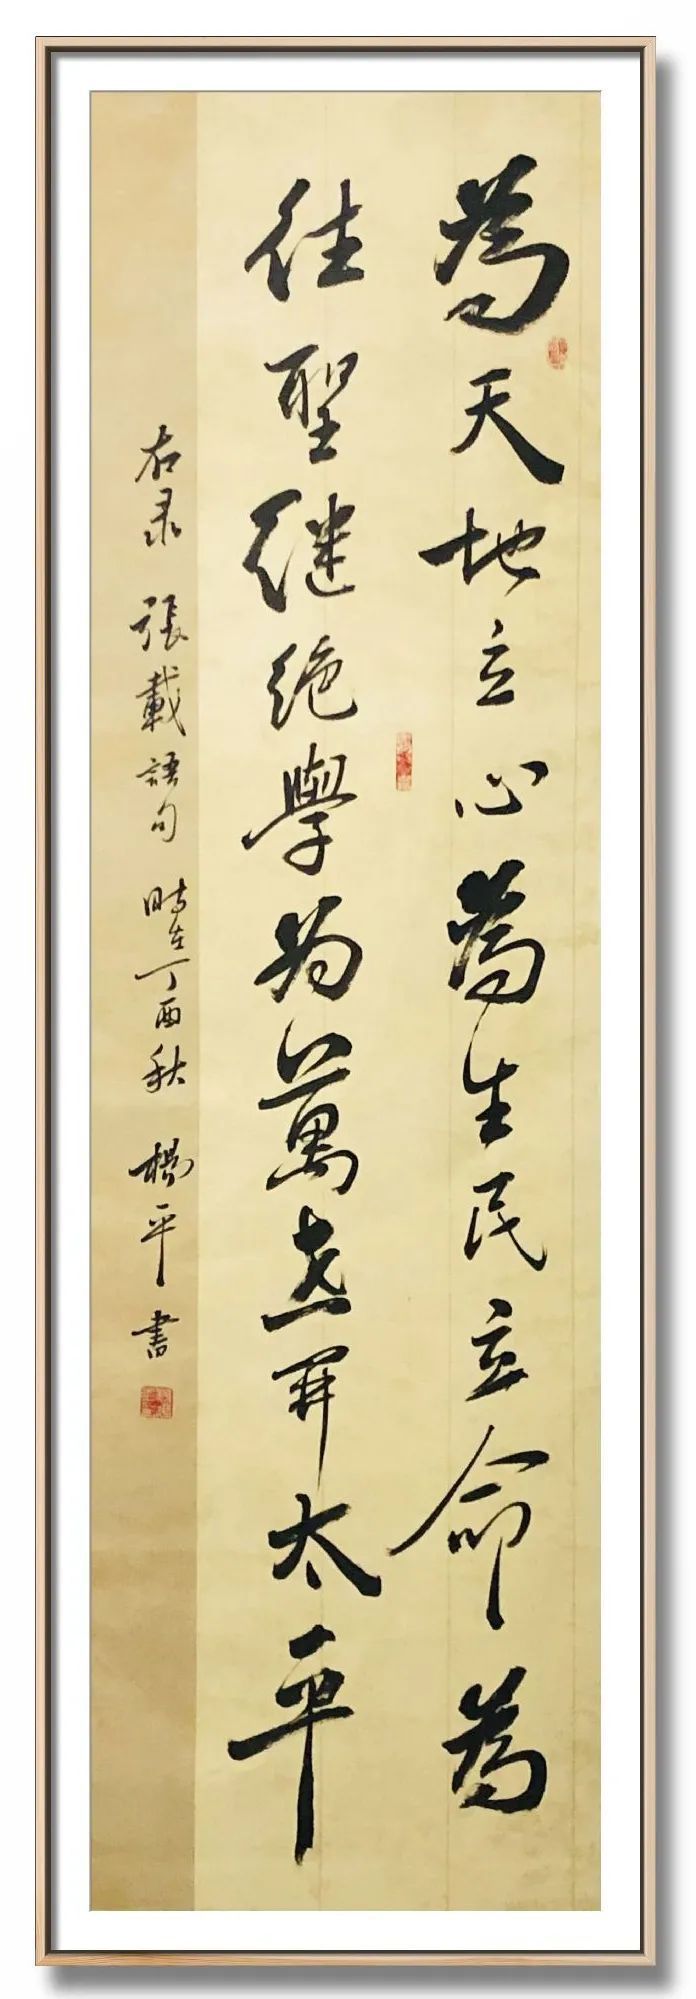 為天地立心為生民立命為
往聖继绝學为萬世开太平
右录 張載語句 時在丁酉秋 楊平書